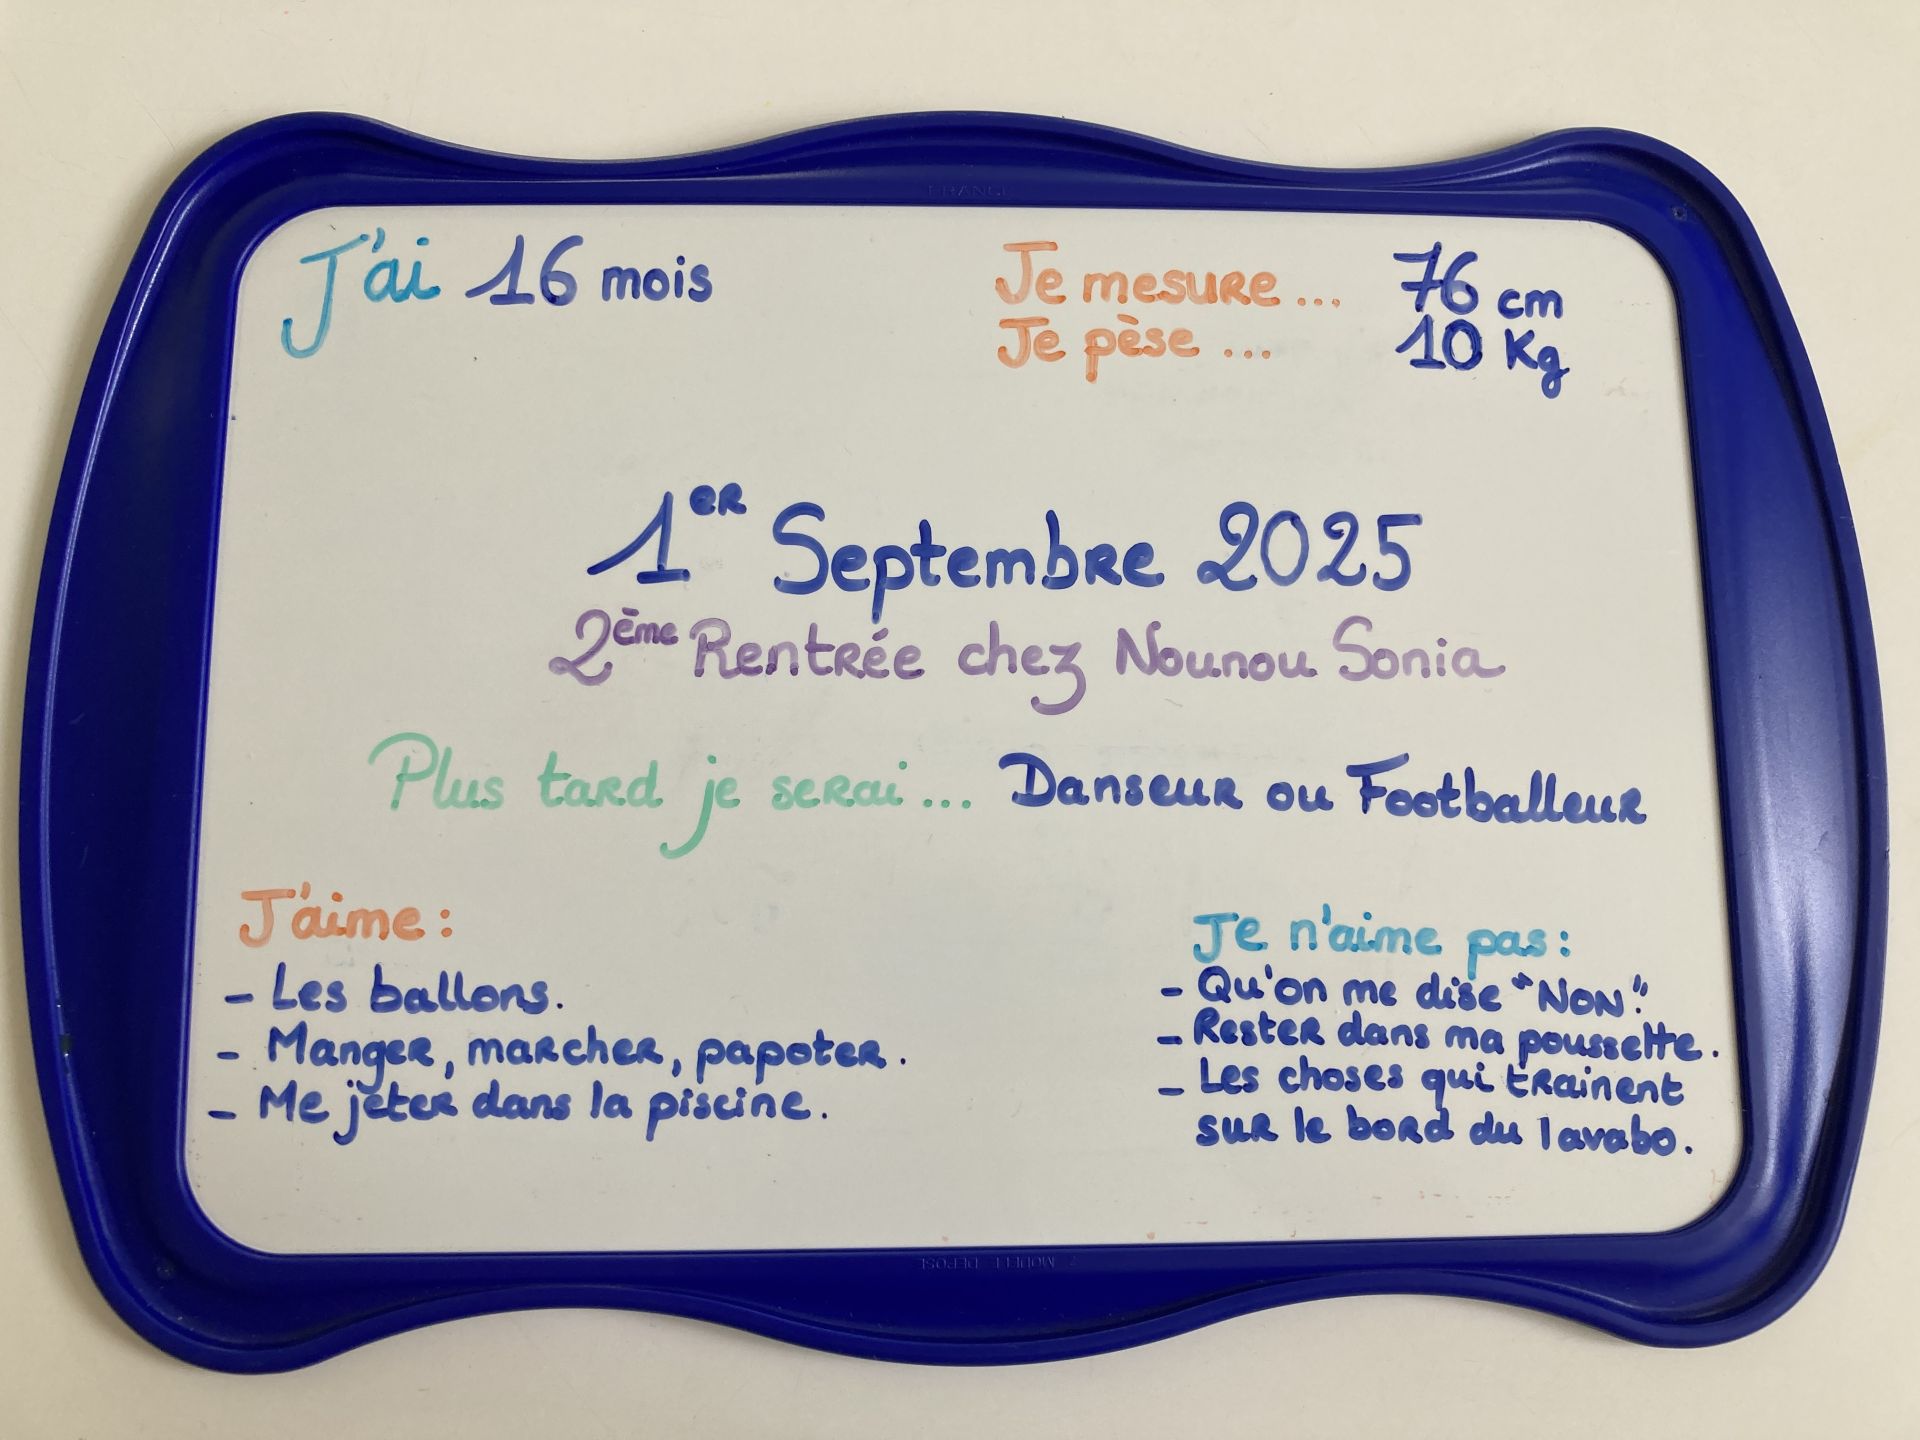 FRANCE
J'ai 16 mois
Je mesure... 76 cm
Je pèse ... 10 Kg
1er Septembre 2025
2ème Rentrée chez Nounou Sonia
Plus tard je serai... Danseur ou Footballeur
J'aime :
- Les ballons.
- Manger, marcher, papoter.
- Me jeter dans la piscine.
Je n'aime pas :
- Qu'on me dise "NON".
- Rester dans ma poussette.
- Les choses qui trainent
sur le bord du lavabo.
MODELE DEPOSE